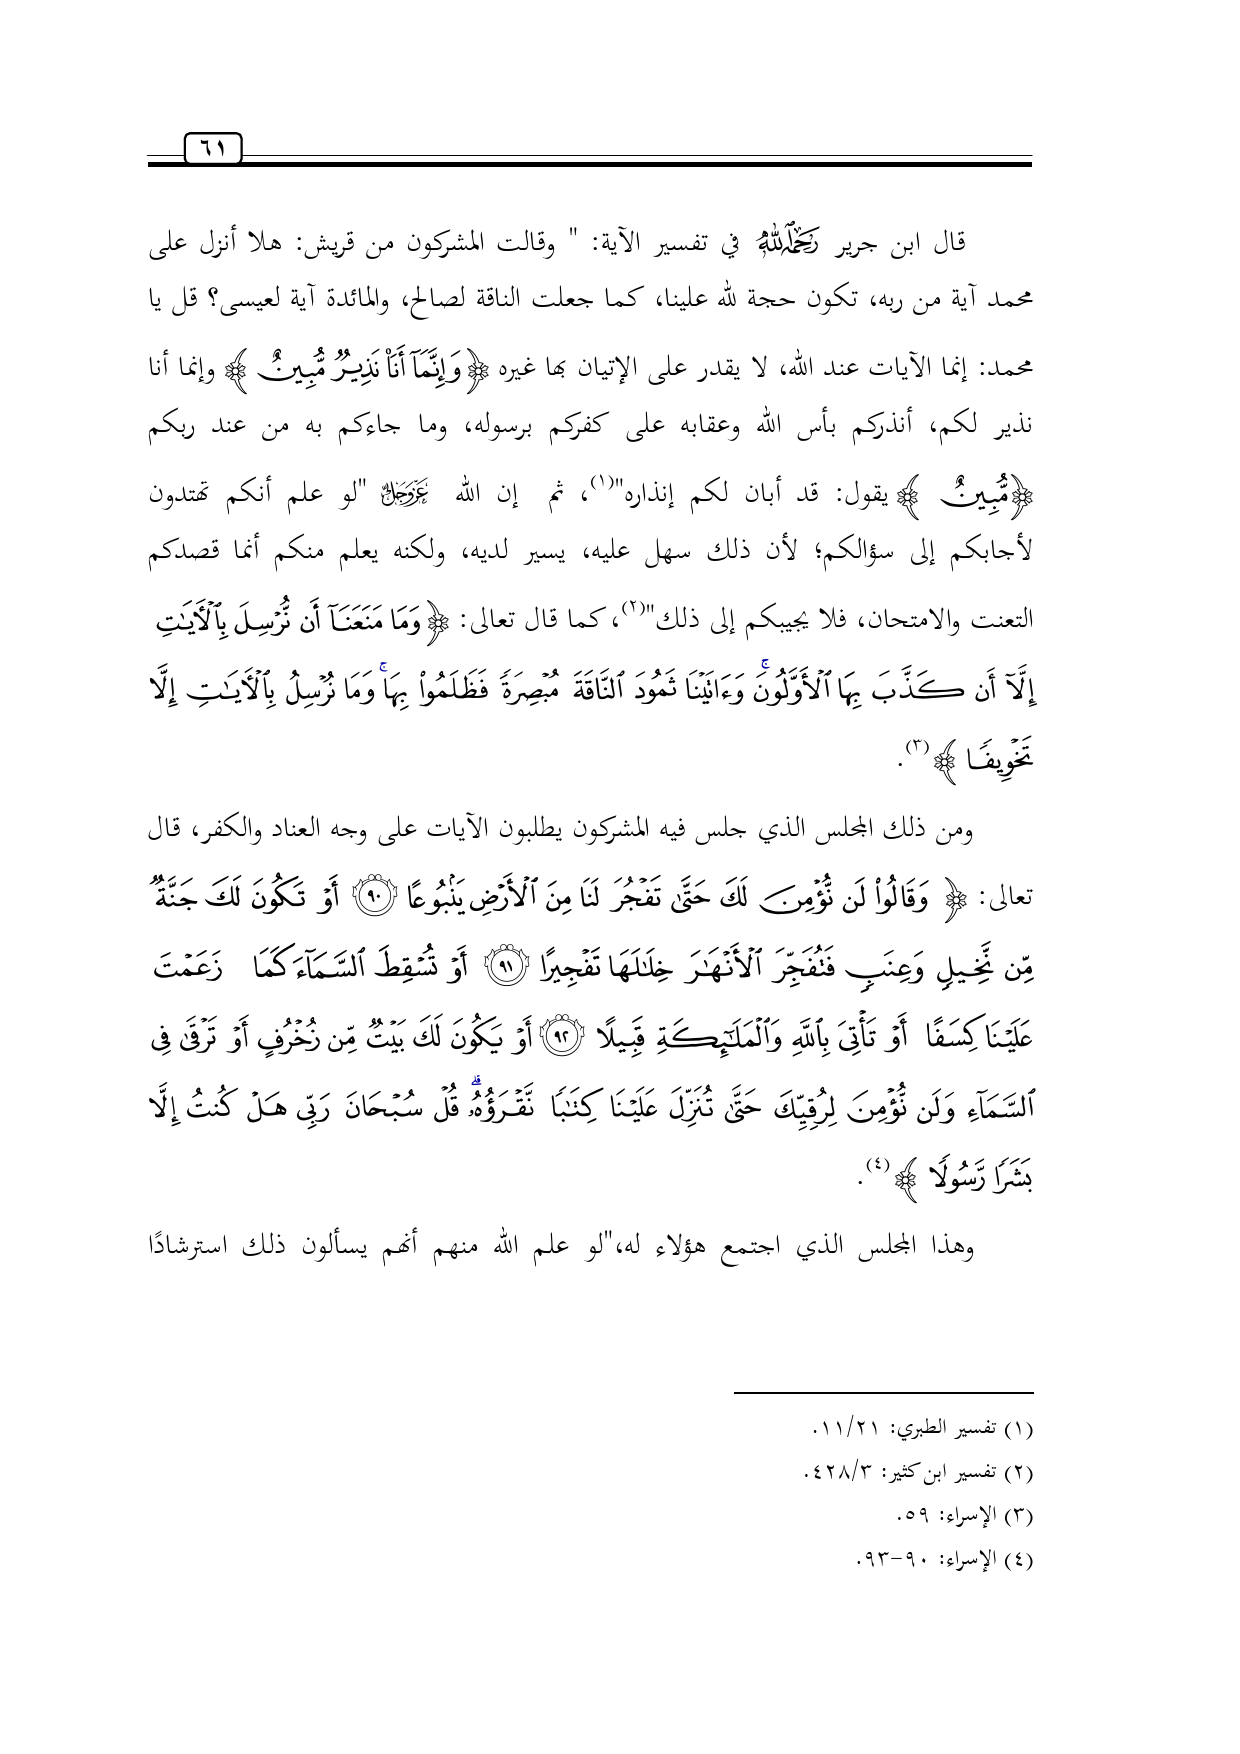 ٦١
قال ابن جرير رحمه الله في تفسير الآية: " وقالت المشركون من قريش: هلا أنزل على
محمد آية من ربه، تكون حجة لله علينا، كما جعلت الناقة لصالح، والمائدة آية لعيسى؟ قل يا
محمد: إنما الآيات عند الله، لا يقدر على الإتيان بها غيره ﴿وَإِنَّمَآ أَنَا۠ نَذِيرٞ مُّبِينٌ﴾ وإنما أنا
نذير لكم، أنذركم بأس الله وعقابه على كفركم برسوله، وما جاءكم به من عند ربكم
﴿مُّبِينٌ﴾ يقول: قد أبان لكم إنذاره"(١)، ثم إن الله عز وجل "لو علم أنكم تهتدون
لأجابكم إلى سؤالكم؛ لأن ذلك سهل عليه، يسير لديه، ولكنه يعلم منكم أنما قصدكم
التعنت والامتحان، فلا يجيبكم إلى ذلك"(٢)، كما قال تعالى: ﴿وَمَا مَنَعَنَآ أَن نُّرۡسِلَ بِٱلۡأٓيَٰتِ
إِلَّآ أَن كَذَّبَ بِهَا ٱلۡأَوَّلُونَۚ وَءَاتَيۡنَا ثَمُودَ ٱلنَّاقَةَ مُبۡصِرَةٗ فَظَلَمُواْ بِهَاۚ وَمَا نُرۡسِلُ بِٱلۡأٓيَٰتِ إِلَّا
تَخۡوِيفٗا﴾(٣).
ومن ذلك المجلس الذي جلس فيه المشركون يطلبون الآيات على وجه العناد والكفر، قال
تعالى: ﴿وَقَالُواْ لَن نُّؤۡمِنَ لَكَ حَتَّىٰ تَفۡجُرَ لَنَا مِنَ ٱلۡأَرۡضِ يَنۢبُوعًا ٩٠ أَوۡ تَكُونَ لَكَ جَنَّةٞ
مِّن نَّخِيلٖ وَعِنَبٖ فَتُفَجِّرَ ٱلۡأَنۡهَٰرَ خِلَٰلَهَا تَفۡجِيرًا ٩١ أَوۡ تُسۡقِطَ ٱلسَّمَآءَ كَمَا زَعَمۡتَ
عَلَيۡنَا كِسَفًا أَوۡ تَأۡتِيَ بِٱللَّهِ وَٱلۡمَلَٰٓئِكَةِ قَبِيلًا ٩٢ أَوۡ يَكُونَ لَكَ بَيۡتٞ مِّن زُخۡرُفٍ أَوۡ تَرۡقَىٰ فِي
ٱلسَّمَآءِ وَلَن نُّؤۡمِنَ لِرُقِيِّكَ حَتَّىٰ تُنَزِّلَ عَلَيۡنَا كِتَٰبٗا نَّقۡرَؤُهُۥۗ قُلۡ سُبۡحَانَ رَبِّي هَلۡ كُنتُ إِلَّا
بَشَرٗا رَّسُولٗا﴾(٤).
وهذا المجلس الذي اجتمع هؤلاء له،"لو علم الله منهم أنهم يسألون ذلك استرشادًا
(١) تفسير الطبري: ١١/٢١.
(٢) تفسير ابن كثير: ٤٢٨/٣.
(٣) الإسراء: ٥٩.
(٤) الإسراء: ٩٠-٩٣.